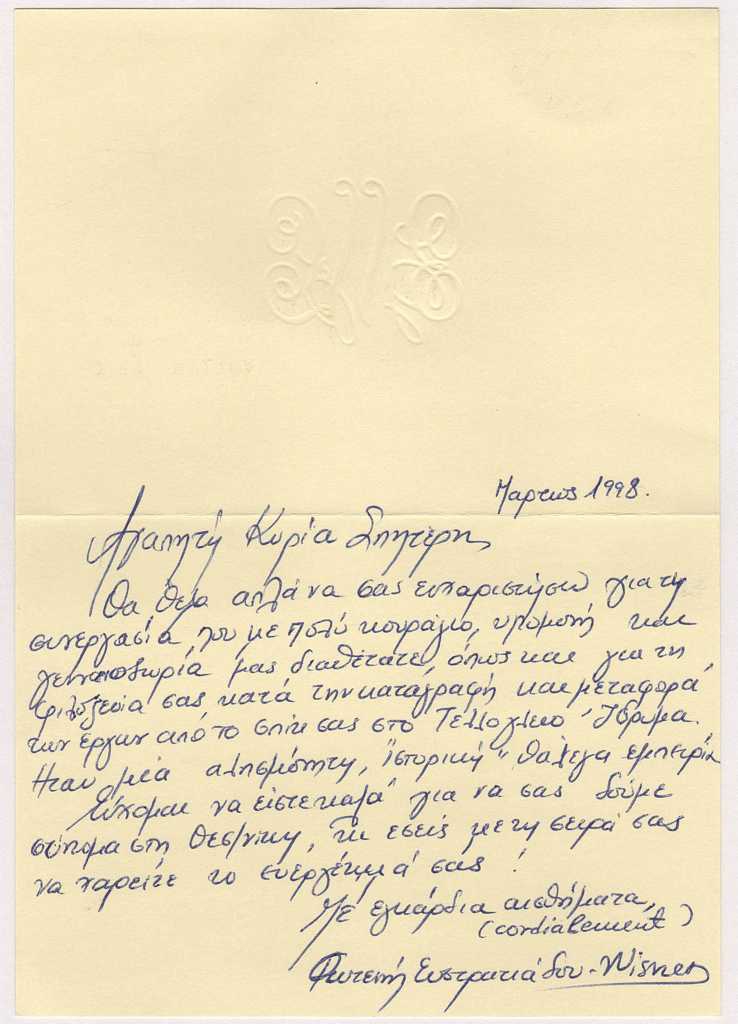 Μαρτιος 1998.
Αγαπητή Κυρία Σπητέρη,
Θα θελα απλά να σας ευχαριστήσω για τη
συνεργασία που με πολύ κουράγιο, υπομονή και
γενναιοδωρία μας διαθέτατε, όπως και για τη
φιλοξενία σας κατά την καταγραφή και μεταφορά
των έργων από το σπίτι σας στο Τελλόγλειο Ίδρυμα.
Ήταν μία αλησμόνητη, "ιστορική" θα λεγα εμπειρία
Εύχομαι να είστε καλά για να σας δούμε
σύντομα στη Θεσ/νίκη, κι εσείς με τη σειρά σας
να χαρείτε το ευεργέτημά σας!
Με εγκάρδια αισθήματα,
(cordialement)
Φωτεινή Ευστρατιάδου-Wisner